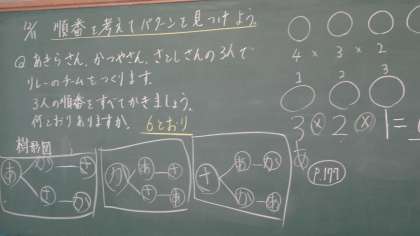 12/11 順番を考えてパターンを見つけよう。
Q あきらさん、かつやさん、さとしさんの3人で
リレーのチームをつくります。
3人の順番をすべてかきましょう。
何とおりありますか。 6とおり
樹形図
あ か さ
さ か
か あ さ
さ あ
さ あ か
か あ
4 × 3 × 2
1 2 3
3 × 2 × 1 =
P.177